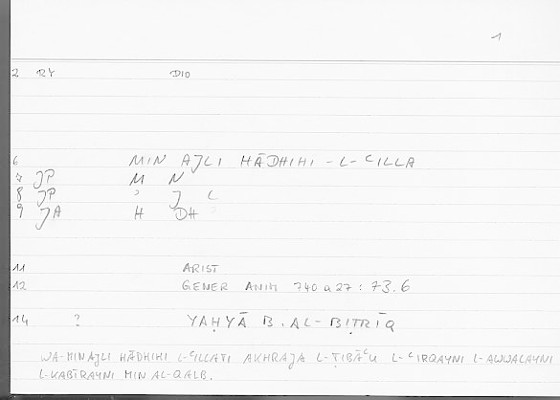 1
2 RY DIO
6 MIN AJLI HĀDHIHI-L-ʿILLA
7 JP M N
8 JP ʾ J L
9 JA H DH
11 ARIST
12 GENER ANIM 740 a 27 : 73.6
14 ? YAḤYĀ B. AL-BIṬRĪQ
WA-MIN AJLI HĀDHIHI L-ʿILLATI AKHRAJA L-ṬIBĀʿU L-ʿIRQAYNI L-AWWALAYNI
L-KABĪRAYNI MIN AL-QALB.